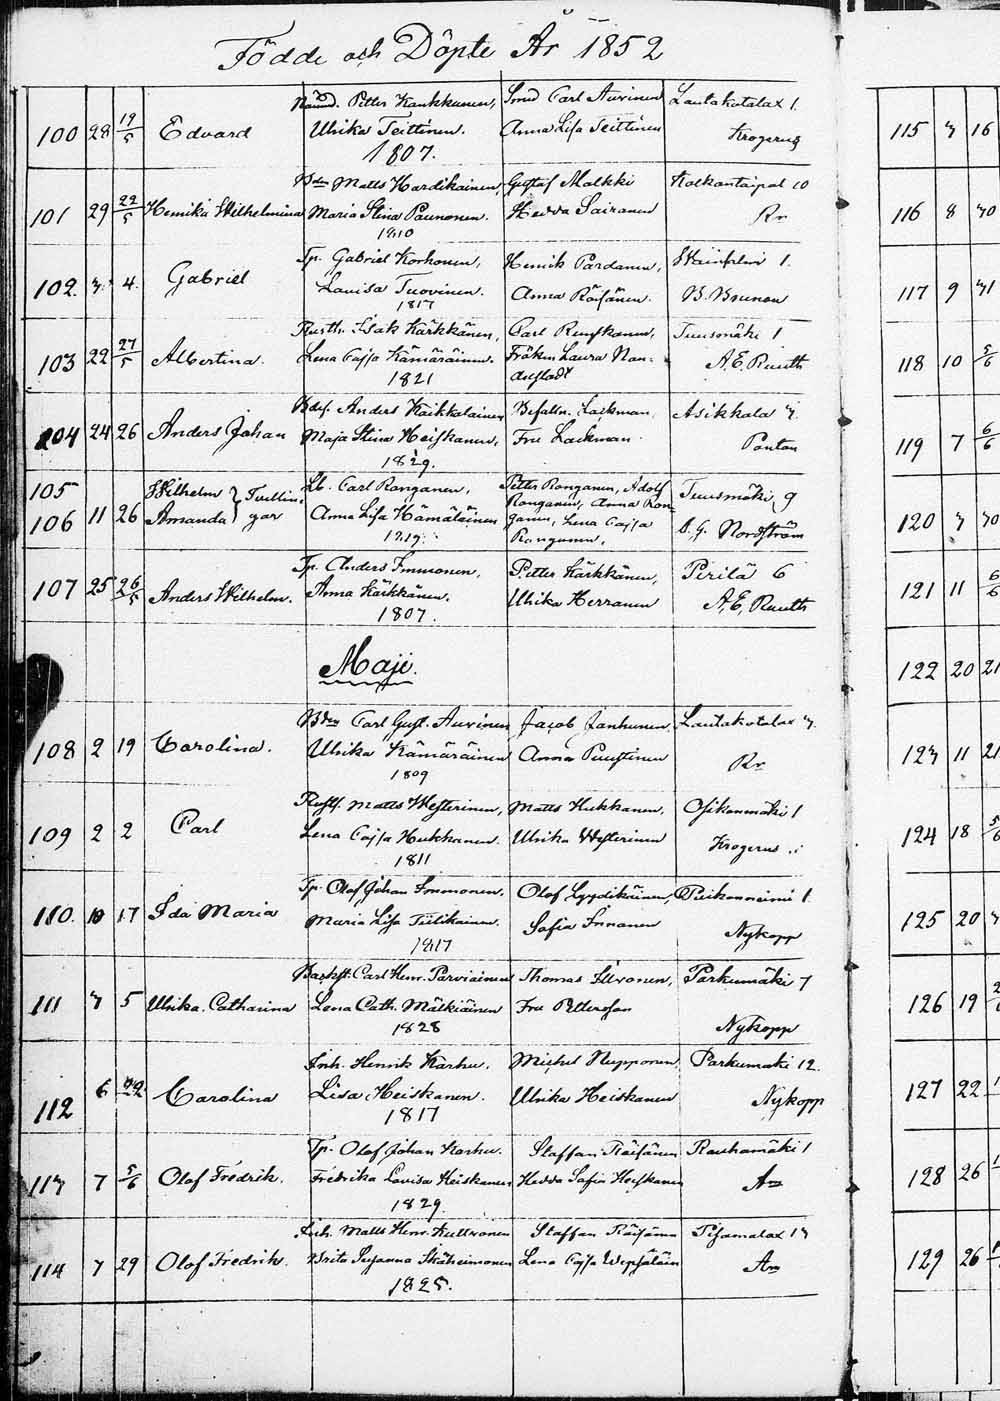 Födde och Döpte År 1852
100 28 19/5 Edvard
Nämd. Petter Kankkunen,
Ulrika Teittinen.
1807.
Smed Carl Auvinen
Anna Lisa Teittinen
Lautakotalax 1.
Krogerus
101 29 22/5 Henrika Wilhelmina
Bdn Matts Hardikainen,
Maria Stina Paunonen.
1810
Gustaf Malkki
Hedda Sairanen
Kolkontaipal 10
Rr
102. 3. 4. Gabriel
Tp. Gabriel Korhonen,
Lovisa Tuovinen.
1817
Henrik Pardanen,
Anna Räisänen.
1.
B. Brunou
103 22 27/5 Albertina.
Rusth. Isak Kärkkänen,
Lena Cajsa Kämäräinen.
1821
Carl Reijkanen,
Fröken Laura Non-
austadt
Tuusmäki 1
A. E. Ruuth
104 24 26 Anders Johan
Bdes. Anders Kaikkalainen
Maja Stina Heiskanen,
1829.
Befalln. Lackman,
Fru Lackman.
Asikkala 3.
Pontan
105 Wilhelm } Tvillin-
106 11 26 Amanda } gar
Lb. Carl Ronganen,
Anna Lisa Hämäläinen
1819.
Petter Ronganen, Adolf
Ronganen, Anna Ron-
ganen, Lena Cajsa
Ronganen.
Tuusmäki 9
A. G. Nordström
107 25 26/5 Anders Wilhelm.
Tp. Anders Immonen,
Anna Kärkkänen.
1807.
Petter Kärkkänen,
Ulrika Herranen
Pirilä 6
A. E. Ruuth
Maji.
108 2 19 Carolina.
Bdn Carl Gust. Auvinen
Ulrika Kämäräinen
1809
Jacob Janhunen
Anna Puustinen
Lautakotalax 3.
Rr
109 2 2 Carl
Rusth. Matts Westerinen,
Lena Cajsa Hukkanen.
1811
Matts Hukkanen,
Ulrika Westerinen
Osikonmäki 1
Krogerus
110. 10 17 Ida Maria
Tp. Olof Johan Immonen.
Maria Lisa Tiilikainen.
1817
Olof Lyydikäinen,
Sofia Innanen
1.
Nykopp
111 3 5 Ulrika Catharina
Backst. Carl Henr. Parviainen
Lena Cath. Mälkiäinen
1828
Thomas Ilvonen,
Fru Petterson
Parkumäki 7
Nykopp
112 6 Carolina
Inh. Henrik Karhu.
Lisa Heiskanen.
1817
Michel Nupponen,
Ulrika Heiskanen
Parkumäki 12.
Nykopp
113 7 5/6 Olof Fredrik.
Tp. Olof Johan Karhu.
Fredrika Lovisa Heiskanen
1829.
Staffan Räisänen
Hedda Sofia Heiskanen
Rauhamäki 1
Am
114 7 29 Olof Fredrik.
Inh. Matts Henr. Kuttvonen
Brita Susanna Ikäheimonen
1825.
Staffan Räisänen
Lena Cajsa Wepsäläin
Pisamalax 13
Am
115 3 16
116 8 30
117 9 31
118 10 5/6
119 7 6/6
120 3 30
121 11 6/6
122 20 21
123 11 21
124 18 5/6
125 20
126 19
127 22
128 26
129 26